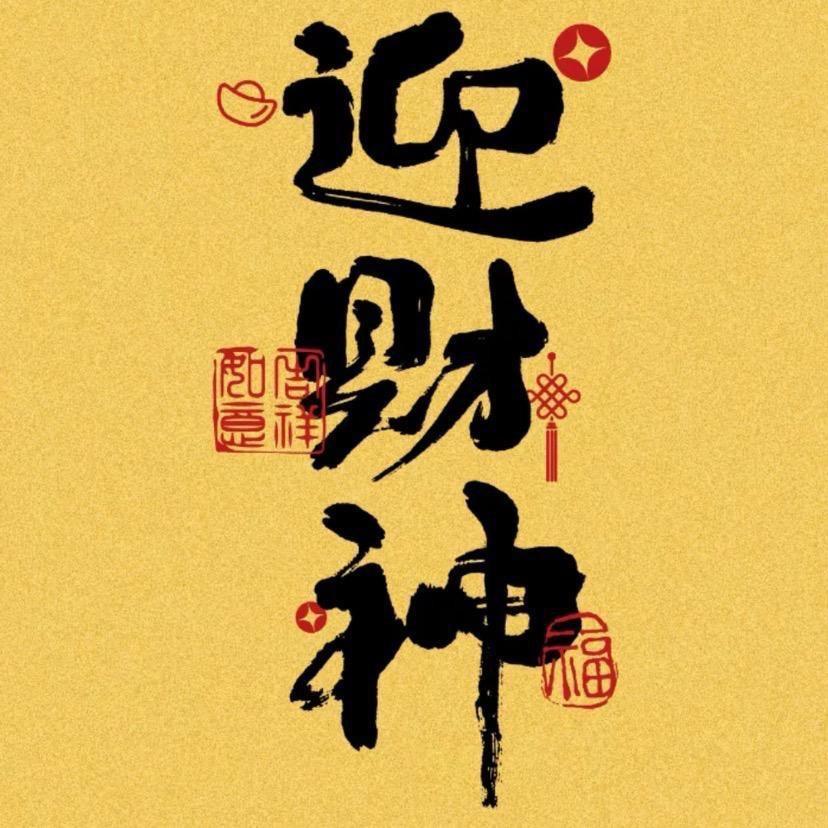 迎财神
吉祥如意
福